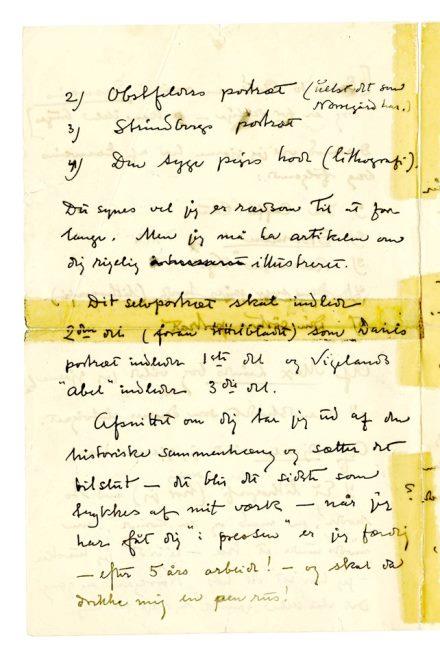 2) Obstfelders portræt (helst det som
Nørregård har.)
3) Strindbergs portræt
4) Den syge piges hode (lithografi).
Du synes vel jeg er rædsom til at for
lange. Men jeg må ha artikelen om
dig rigelig illustreret.
Dit selvportræt skal indlede
2den del (från Hårbladet) som Davids
portræt indleder 1ste del og Vigelands
"Abel" indleder 3die del.
Afsnittet om dig tar jeg ud af den
historiske sammenhæng og sætter det
tilslut – det blir det sidste som
trykkes af mit værk – når jeg
har fåt dig "i pressen" er jeg færdig
– efter 5 års arbeide! – og skal da
drikke mig en pen rus!